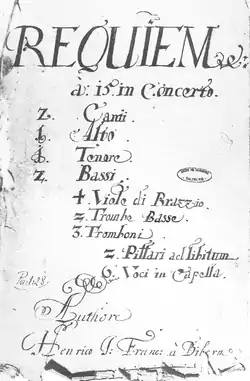 REQUIEM
à: 15. in Concerto.
2. Canti.
1. Alto
1. Tenore
2. Bassi.
4. Viole di Brazzio
2. Trombe Basse.
3. Tromboni.
2. Piffari ad libitum
6. Voci in Capella.
Part: 28.
Authore
Henrico I: Franc: à Bibern